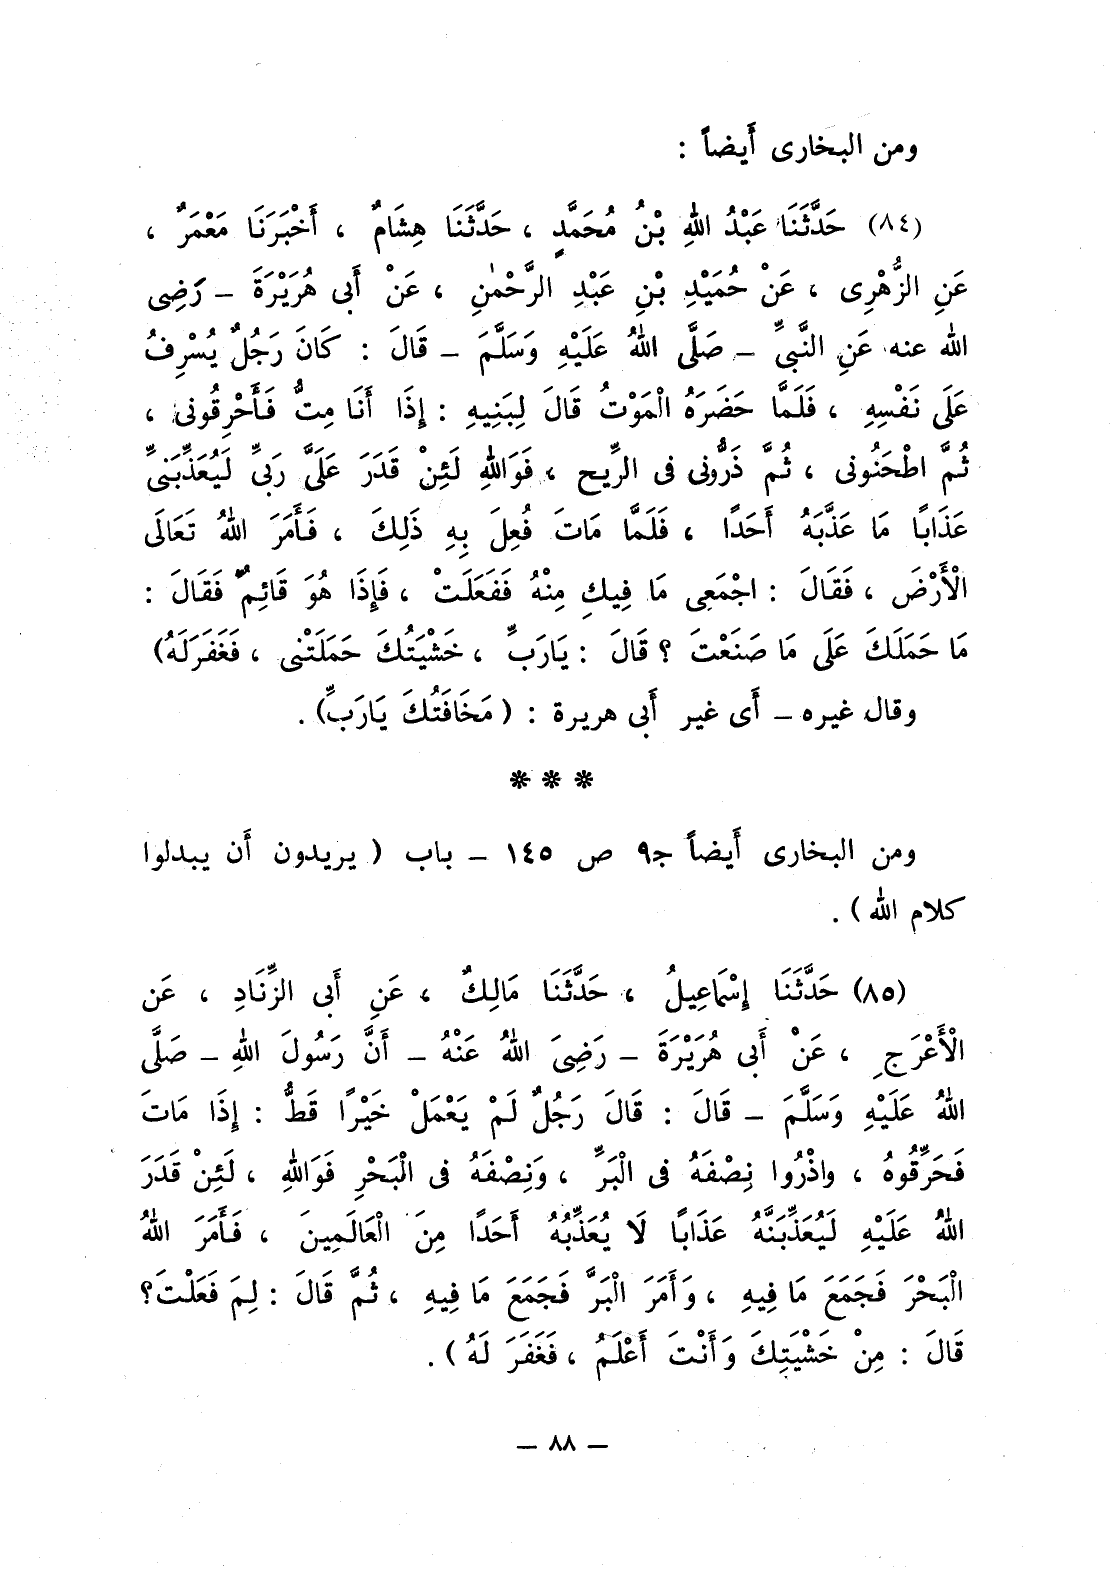 ومن البخارى أَيضاً :
(٨٤) حَدَّثَنَا عَبْدُ اللهِ بْنُ مُحَمَّدٍ ، حَدَّثَنَا هِشَامٌ ، أَخْبَرَنَا مَعْمَرٌ ،
عَنِ الزُّهْرِى ، عَنْ حُمَيْدِ بْنِ عَبْدِ الرَّحْمٰنِ ، عَنْ أَبى هُرَيْرَةَ – رَضِى
الله عنه عَنِ النَّبىِّ – صَلَّى اللهُ عَلَيْهِ وَسَلَّمَ – قَالَ : كَانَ رَجُلٌ يُسْرِفُ
عَلَى نَفْسِهِ ، فَلَمَّا حَضَرَهُ الْمَوْتُ قَالَ لِبَنِيهِ : إِذَا أَنَا مِتُّ فَأَحْرِقُونى ،
ثُمَّ اطْحَنُونى ، ثُمَّ ذَرُّونى فى الرِّيح ، فَوَاللهِ لَئِنْ قَدَرَ عَلَىَّ رَبىِّ لَيُعَذِّبَنىِّ
عَذَابًا مَا عَذَّبَهُ أَحَدًا ، فَلَمَّا مَاتَ فُعِلَ بِهِ ذَلِكَ ، فَأَمَرَ اللهُ تَعَالَى
الْأَرْضَ ، فَقَالَ : اجْمَعِى مَا فِيكِ مِنْهُ فَفَعَلَتْ ، فَإِذَا هُوَ قَائِمٌ فَقَالَ :
مَا حَمَلَكَ عَلَى مَا صَنَعْتَ ؟ قَالَ : يَارَبِّ ، خَشْيَتُكَ حَمَلَتْنى ، فَغَفَرَلَهُ)
وقال غيره – أَى غير أَبى هريرة : (مَخَافَتُكَ يَارَبِّ).
* * *
ومن البخارى أَيضاً جـ٩ ص ١٤٥ – باب ( يريدون أَن يبدلوا
كلام الله ) .
(٨٥) حَدَّثَنَا إِسْمَاعِيلُ ، حَدَّثَنَا مَالِكٌ ، عَنِ أَبى الزِّنَادِ ، عَن
الْأَعْرَجِ ، عَنْ أَبى هُرَيْرَةَ – رَضِىَ اللهُ عَنْهُ – أَنَّ رَسُولَ اللهِ – صَلَّى
اللهُ عَلَيْهِ وَسَلَّمَ – قَالَ : قَالَ رَجُلٌ لَمْ يَعْمَلْ خَيْرًا قَطُّ : إِذَا مَاتَ
فَحَرِّقُوهُ ، واذْرُوا نِصْفَهُ فى الْبَرِّ ، وَنِصْفَهُ فى الْبَحْرِ فَوَاللهِ ، لَئِنْ قَدَرَ
اللهُ عَلَيْهِ لَيُعَذِّبَنَّهُ عَذَابًا لَا يُعَذِّبُهُ أَحَدًا مِنَ الْعَالَمِينَ ، فَأَمَرَ اللهُ
الْبَحْرَ فَجَمَعَ مَا فِيهِ ، وَأَمَرَ الْبَرَّ فَجَمَعَ مَا فِيهِ ، ثُمَّ قَالَ : لِمَ فَعَلْتَ؟
قَالَ : مِنْ خَشْيَتِكَ وَأَنْتَ أَعْلَمُ ، فَغَفَرَ لَهُ ) .
– ٨٨ –